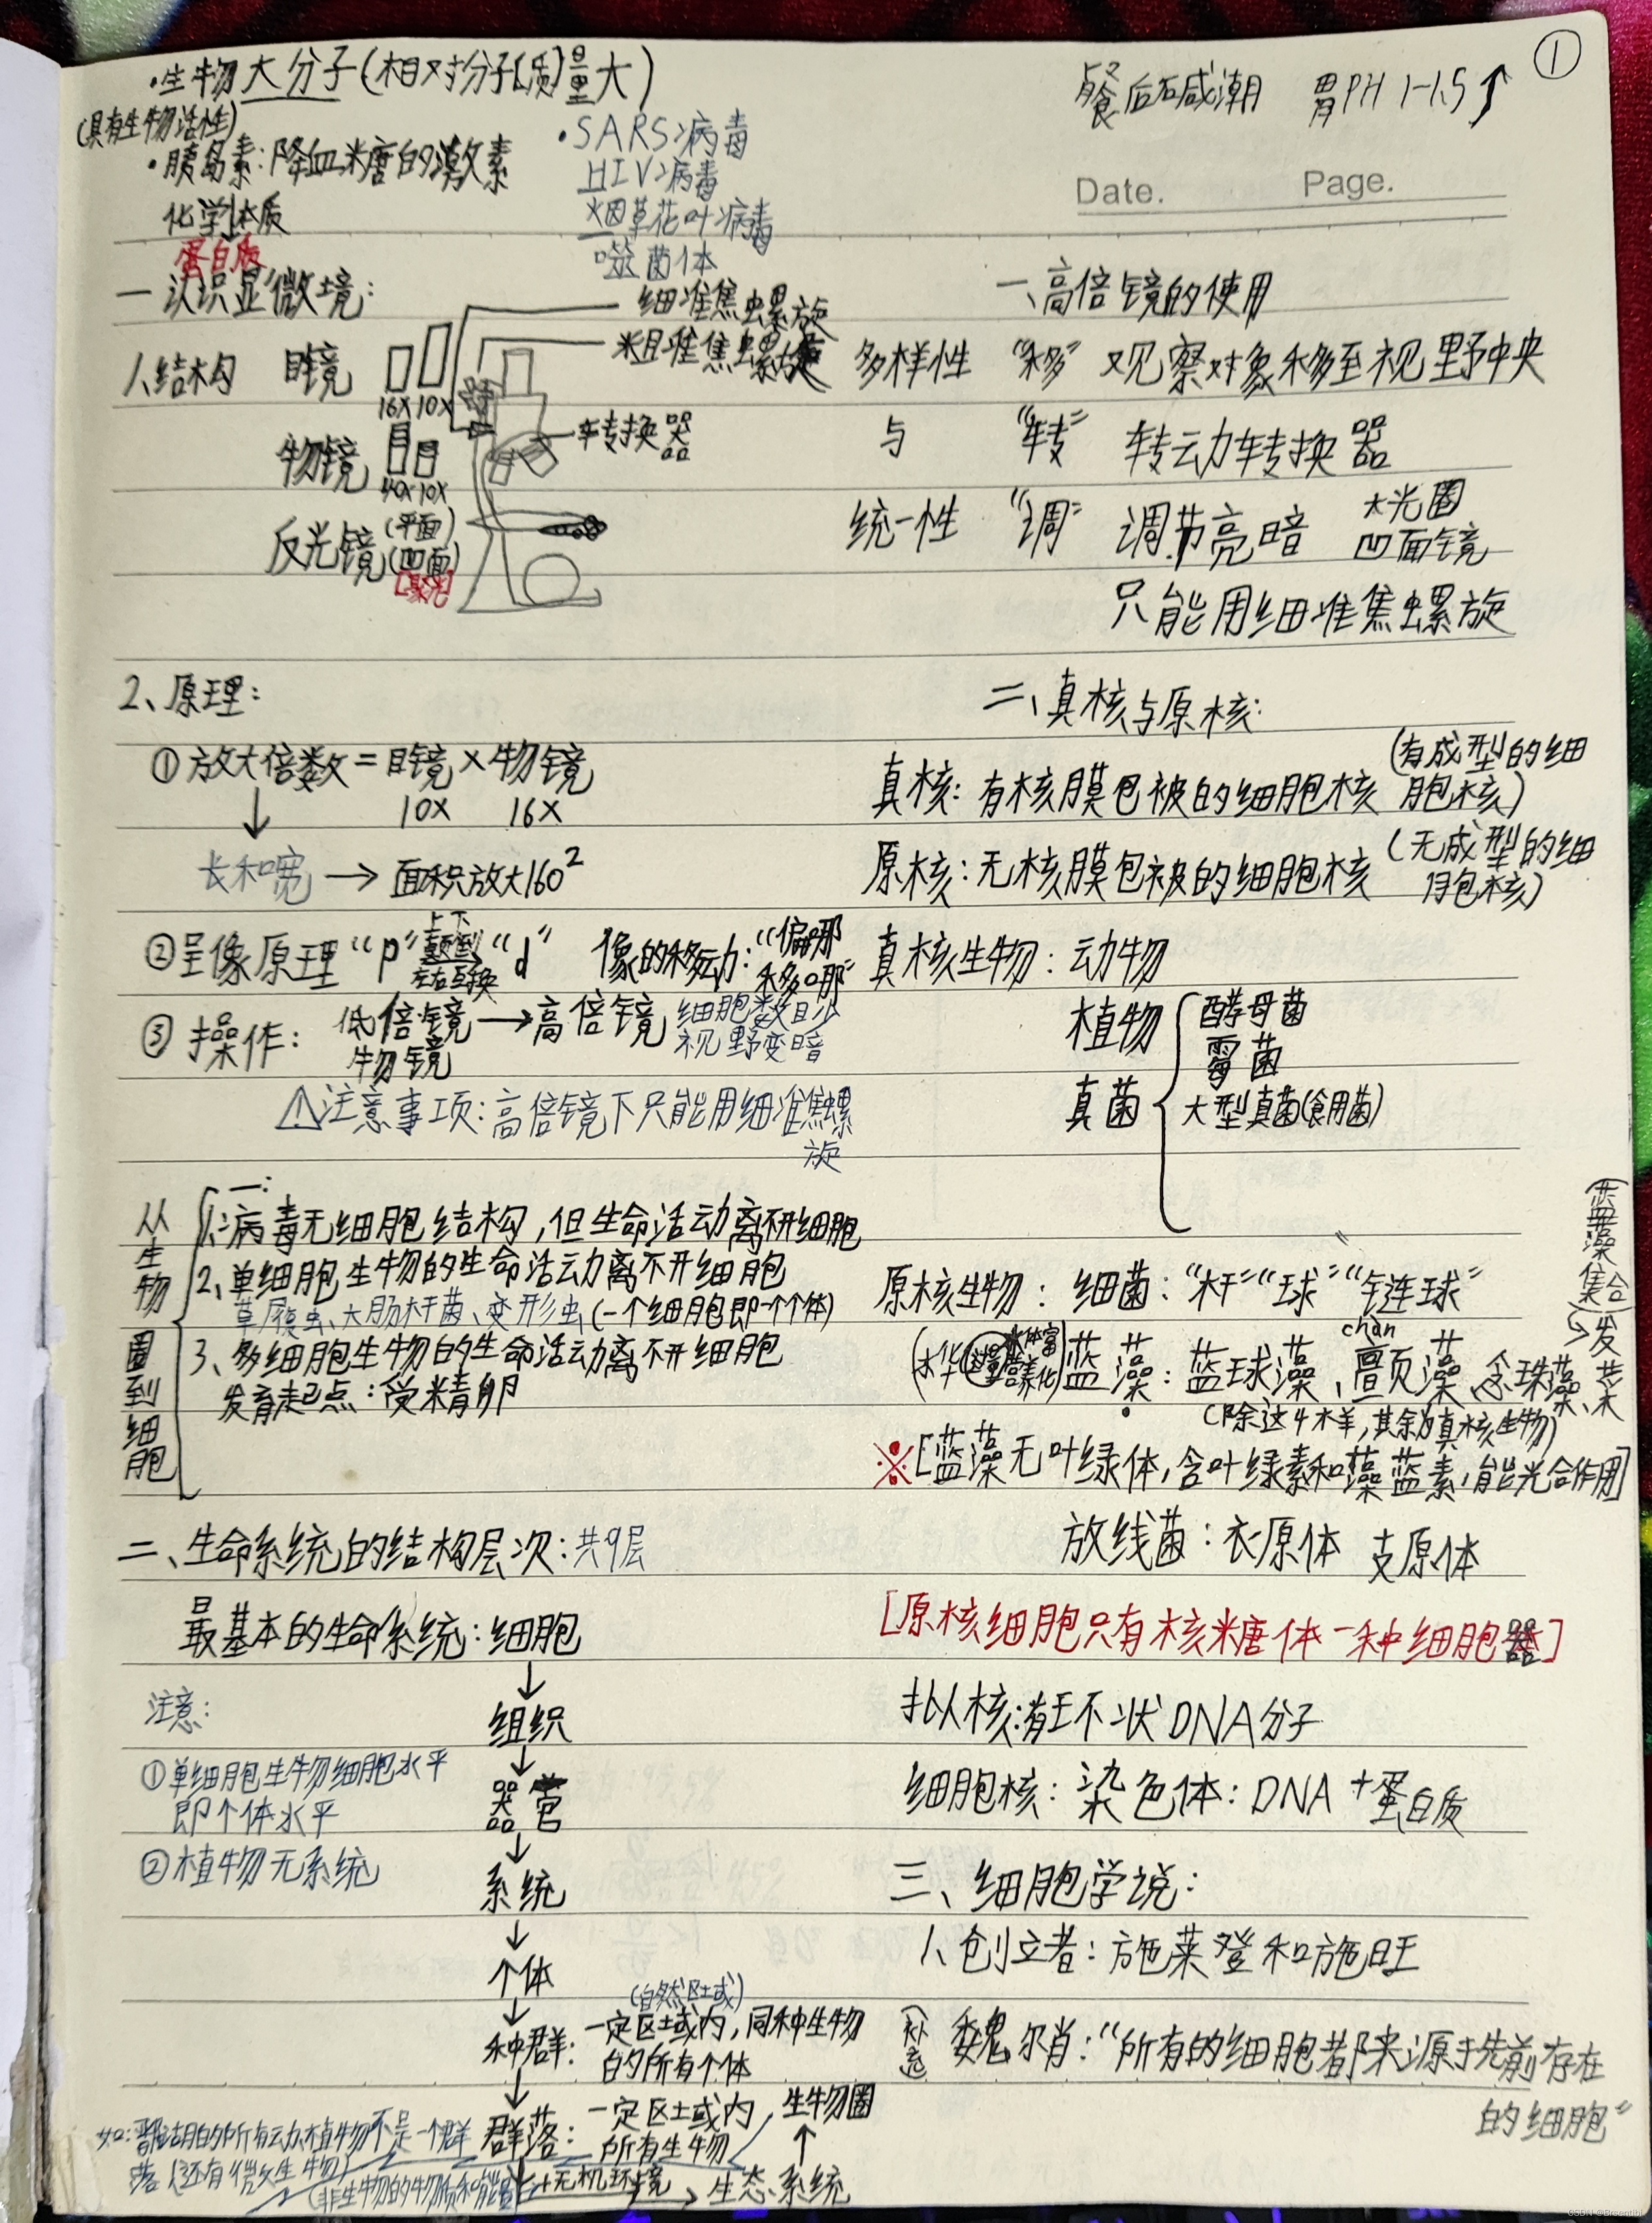 ①
·生物大分子(相对分子质量大)
(具有生物活性)
·胰岛素:降血糖的激素
化学本质
蛋白质
·SARS病毒
HIV病毒
烟草花叶病毒
噬菌体
餐后碱潮 胃PH 1-1.5↑
Date. Page.
一 认识显微境:
1、结构 目镜
16X 10X
物镜
40X 10X
反光镜(平面)
(凹面)
[聚光]
细准焦螺旋
粗准焦螺旋
转换器
2、原理:
①放大倍数=目镜×物镜
10X 16X
↓
长和宽→面积放大160²
②呈像原理“p”上下颠倒 左右互换“d” 像的移动:“偏哪移哪”
③操作: 低倍镜→高倍镜 细胞数目少
物镜 视野变暗
⚠注意事项:高倍镜下只能用细准焦螺旋
从生物圈到细胞
一:
1、病毒无细胞结构,但生命活动离不开细胞
2、单细胞生物的生命活动离不开细胞
草履虫、大肠杆菌、变形虫(一个细胞即一个个体)
3、多细胞生物的生命活动离不开细胞
发育起点:受精卵
二、生命系统的结构层次:共9层
最基本的生命系统:细胞
↓
组织
↓
器官
↓
系统
↓
个体
↓
(自然区域)
种群:一定区域内,同种生物
的所有个体
↓
群落:一定区域内,
所有生物
+无机环境→生态系统
↑
生物圈
注意:
①单细胞生物细胞水平
即个体水平
②植物无系统
的所有动植物不是一个群
落(还有微生物)
(非生物的物质和能量)
多样性
与
统一性
一、高倍镜的使用
“移” 观察对象移至视野中央
“转” 转动转换器
“调” 调节亮暗 大光圈
凹面镜
只能用细准焦螺旋
二、真核与原核:
真核:有核膜包被的细胞核(有成型的细胞核)
原核:无核膜包被的细胞核(无成型的细胞核)
真核生物:动物
植物
真菌
酵母菌
霉菌
大型真菌(食用菌)
原核生物:细菌:“杆”“球”“链球”
(水华 水体富营养化)蓝藻:蓝球藻、颤藻、念珠藻、发菜
chan
(蓝藻集合)
(除这4样,其余为真核生物)
※[蓝藻无叶绿体,含叶绿素和藻蓝素,能光合作用]
放线菌:衣原体 支原体
[原核细胞只有核糖体一种细胞器]
拟核:有环状DNA分子
细胞核:染色体:DNA+蛋白质
三、细胞学说:
1、创立者:施莱登和施旺
(补充) 魏尔肖:“所有的细胞都来源于先前存在
的细胞”